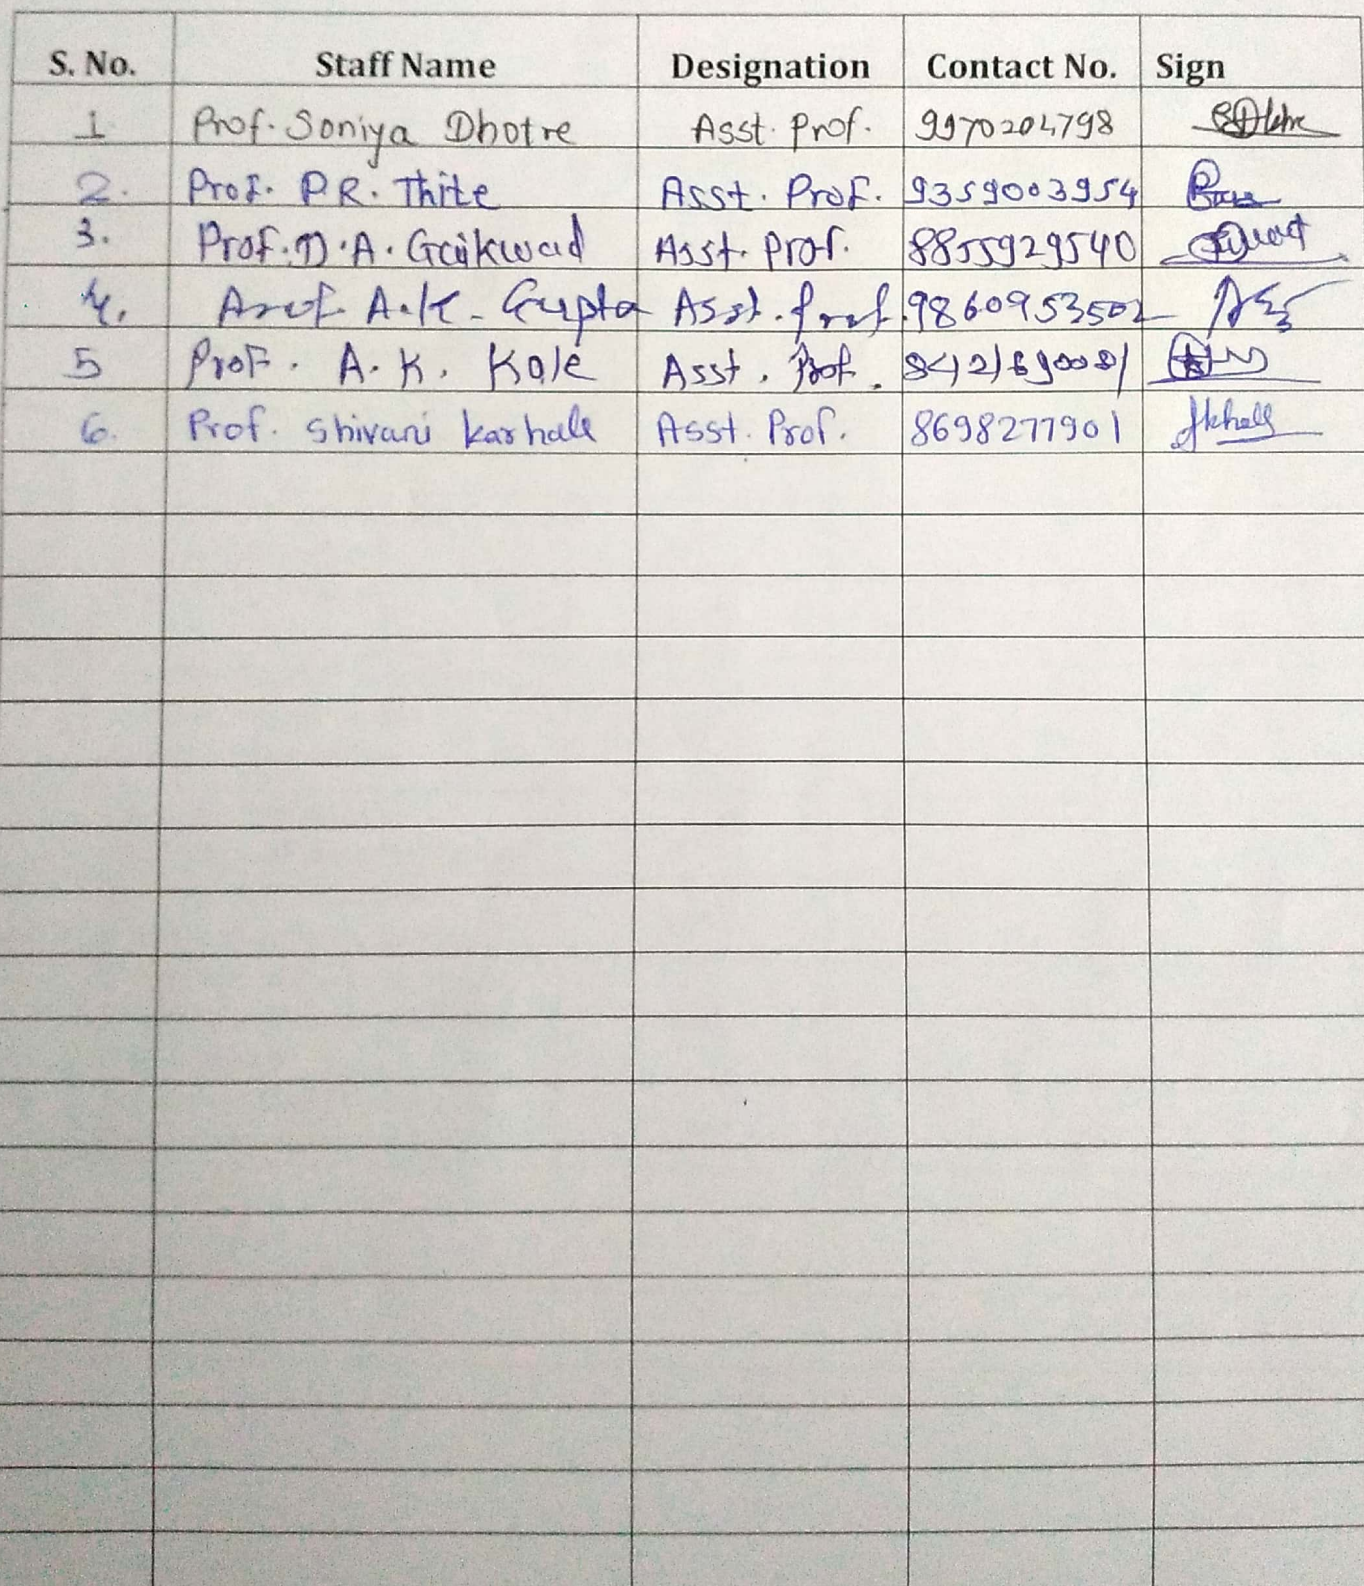 S. No. Staff Name Designation Contact No. Sign
1 Prof. Soniya Dhotre Asst. Prof. 9970204798
2. Prof. P.R. Thite Asst. Prof. 9359003954
3. Prof. D.A. Gaikwad Asst. Prof. 8855929540
4. Prof. A.K. Gupta Asst. Prof. 9860953502
5 Prof. A.K. Kale Asst. Prof.
6. Prof. Shivani Karhale Asst. Prof. 8698277901